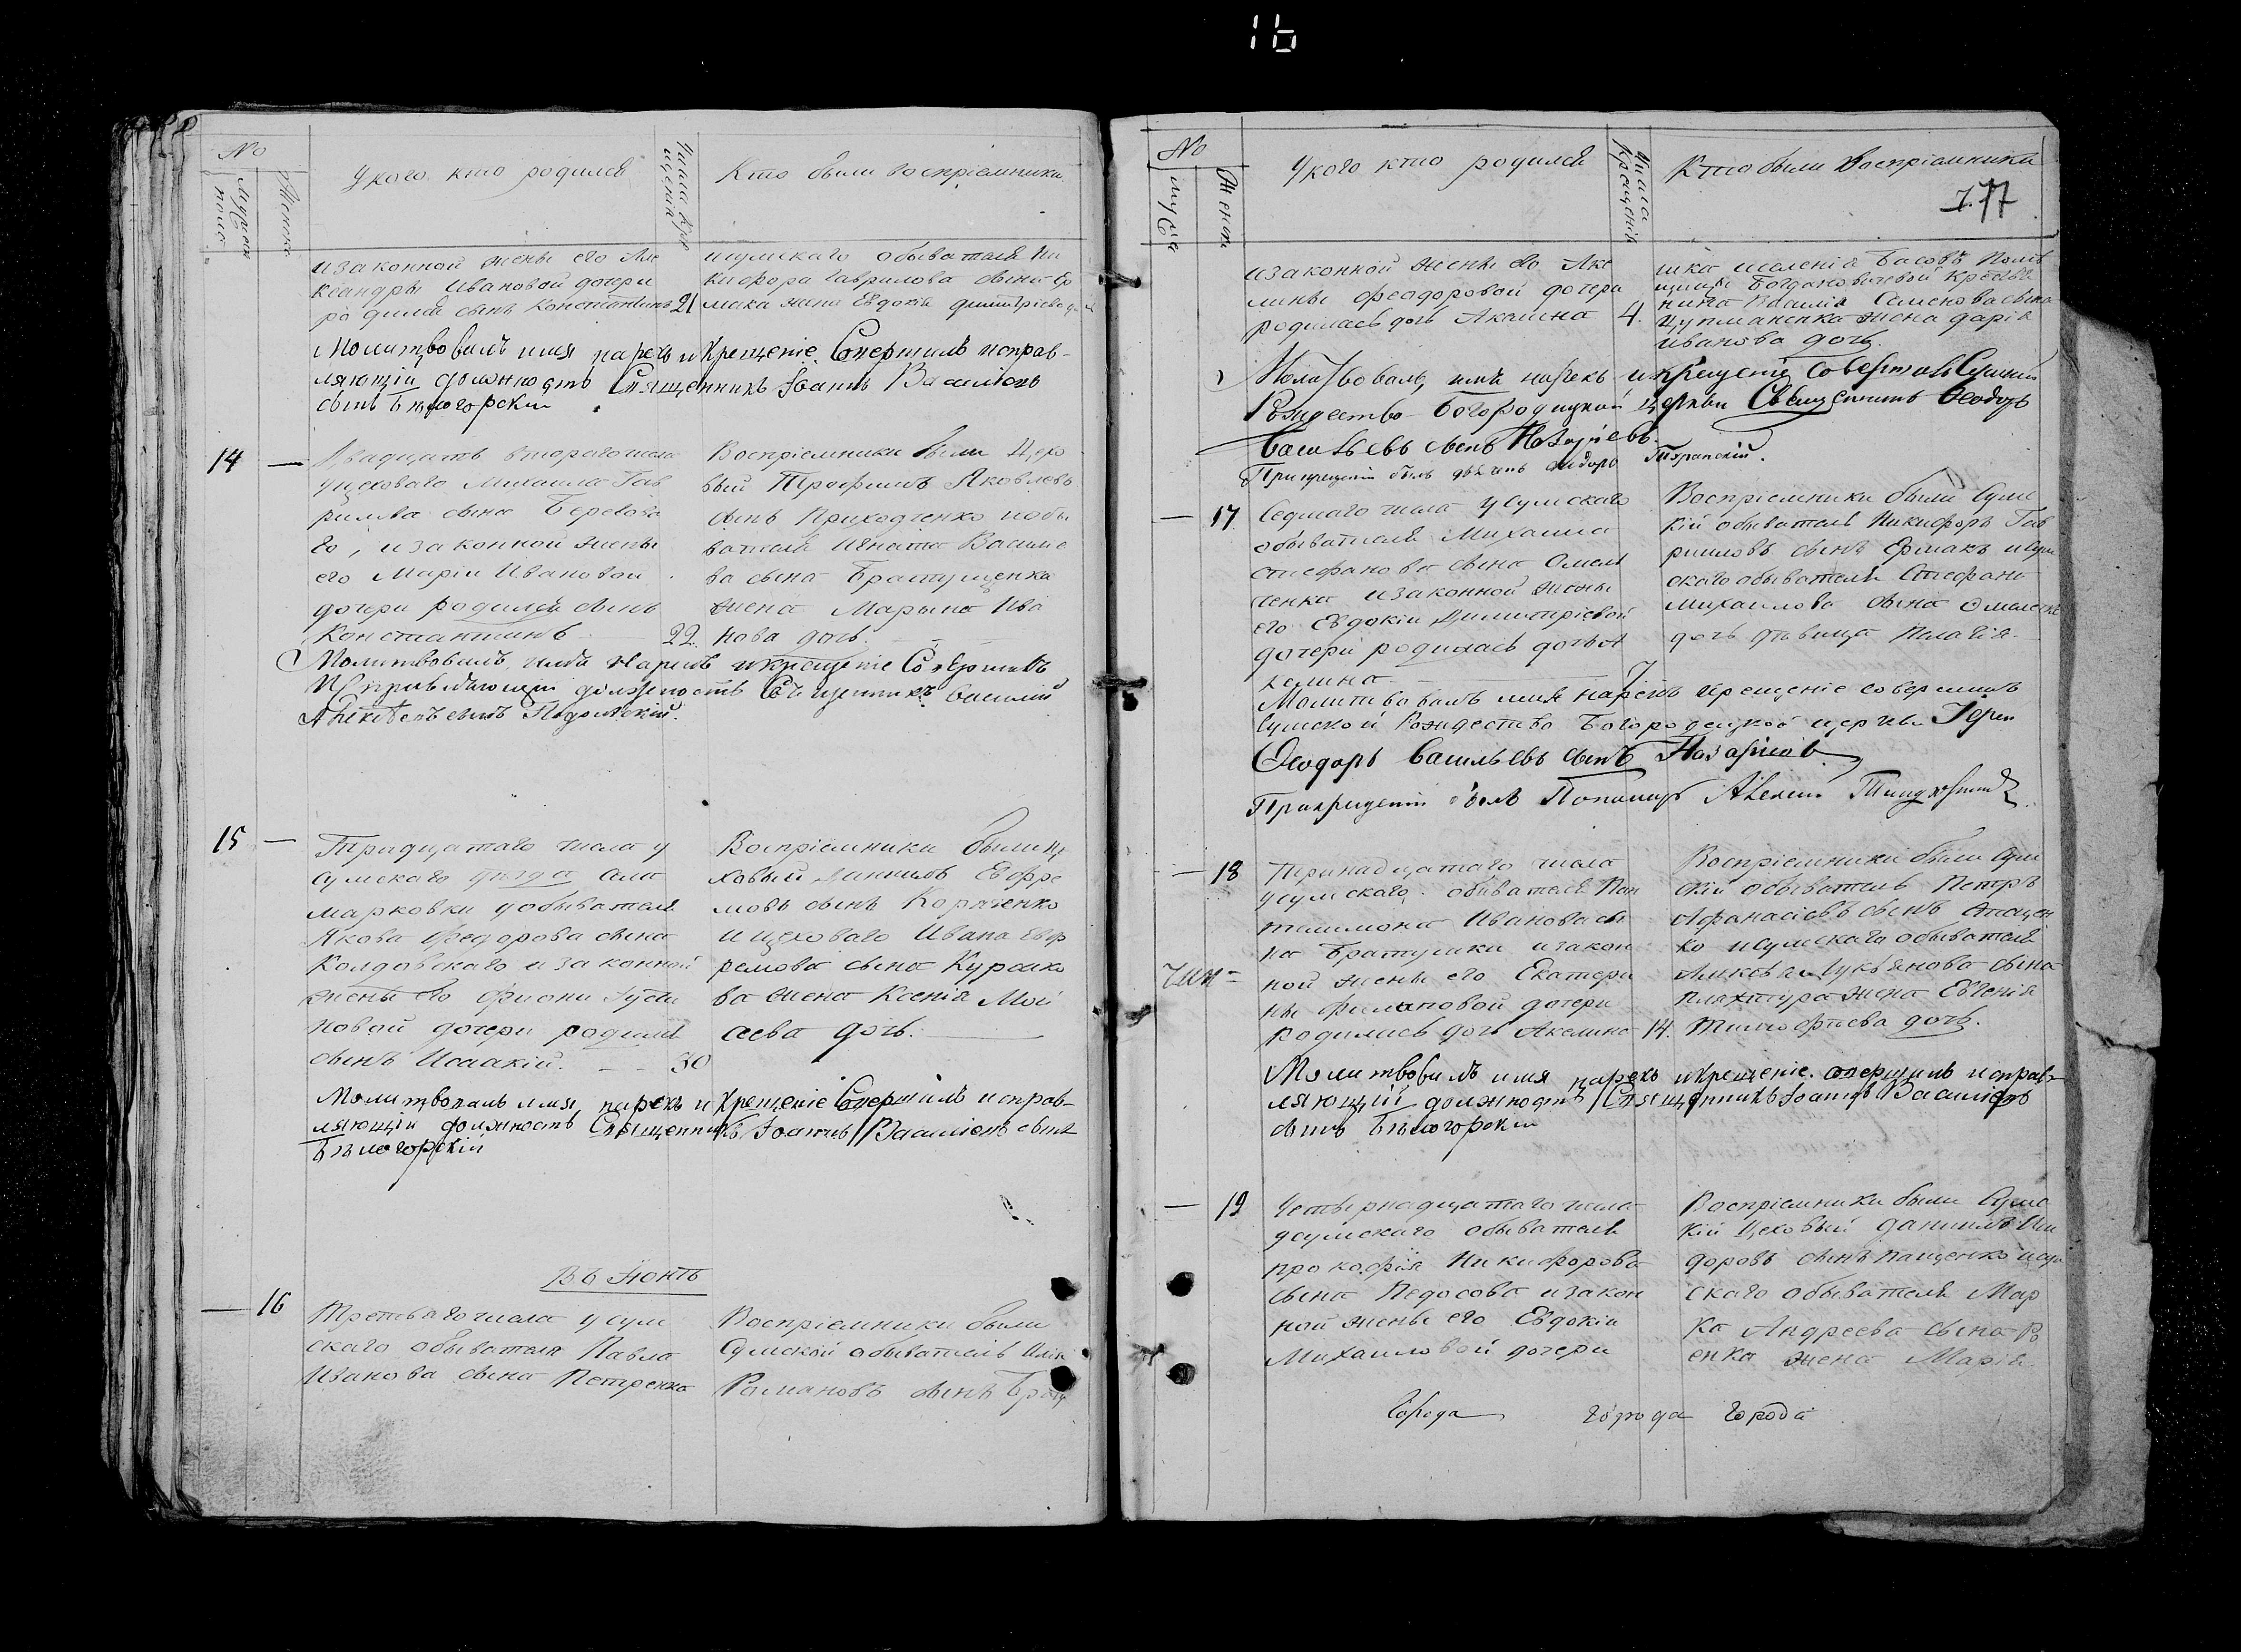 16
№
Мужеск
полъ
Женска
У кого кто родился
Числа кре
щенія
Кто были воспріемники
изаконной жены его Але
ксандры Ивановой дочери
родился сынъ Константинъ 21
мскаго обывателя Ни
кифора Гаврилова сына Ер
мака жена Евдокія Димитріева
Молитвовалъ имя нарекъ и крещеніе Совершилъ исправ-
ляющій должность Священникъ Іоаннъ Васильевъ
сынъ Бѣлогорскій
14
Двадцать втораго числа
уцеховаго Михаила Гав
рилова сына
го, изаконной жены
его Маріи Ивановой
дочери родился сынъ
Константинъ 22.
Воспріемники были Цехо
вый Трофимъ Яковлевъ
сынъ Приходченко иобы
вателя Игната Василье
ва сына Братущенка
жена Марына Ива
нова дочь.
Молитвовалъ, имя нарекъ икрещеніе Совершилъ
Исправляющій должность Священникъ Василій
Алексѣевъ сынъ Подольскій.
15
Тридцатаго числа у
сумскаго уѣзда села
марковки уобывателя
Якова Федорова сына
Колдовскаго изаконной
жены его
новой дочери родился
сынъ Исаакій. 30
Воспріемники были це
ховый Даніилъ Ефре
мовъ сынъ
ицеховаго Ивана Еф
ремова сына
ва жена Ксенія Мои
сеева дочь.
Молитвовалъ имя нарекъ и Крещеніе Совершилъ исправ-
ляющій должность Священникъ Іоаннъ Васильевъ сынъ
Бѣлогорскій
Въ Іюнѣ
16
Третьяго числа усум
скаго обывателя Павла
Иванова сына Петренка
Воспріемники были
Сумской обыватель
Романовъ сынъ
№
Муже
Женск
У кого кто родился
Числа
Крещенія
Кто были Воспріемники
177
изаконной жены его Аке
лины Феодоровой дочери
родилась дочь Акилина 4.
селенія Басовъ Помѣ
щицы Богдановичевой Крестья
нина Семенова сына
жена Дарія
Иванова дочь.
Молитвовалъ, имя нарекъ икрещеніе совершилъ Сумской
Рождество-Богородицкой церкви Священникъ Феодоръ
Васильевъ сынъ Назарьевъ.
При крещеніи былъ
17
Седмаго числа усумскаго
обывателя Михаила
стефанова сына Омель
ченка изаконной жены
его Евдокіи Димитріевой
дочери родилась дочь А
килина 7
Воспріемники были Сумс
кій обыватель Никифоръ Гав
риловъ сынъ Ермакъ исум
скаго обывателя Стефана
Михаилова сына Омелченка
дочь дѣвица Палагія.
Молитвовалъ имя нарекъ крещеніе совершилъ
Сумской Рождество Богородицкой церкви Іерей
Феодоръ Васильевъ сынъ Назарьевъ
При крещеніи былъ Пономарь Алексій
18
Тринадцатаго числа
усумскаго обывателя Пан
телимона Иванова сы
на Братушки изакон
ной жены его Екатери
ны Филиповой дочери
родилась дочь Акелина 14.
Воспріемники были Сумс
скій обыватель Петръ
Афанасіевъ сынъ
ко исумскаго обывателя
Лукьянова сына
жена Евгенія
Тимофѣева дочь.
Молитвовалъ имя нарекъ икрещеніе совершилъ исправ-
ляющій должность Священникъ Іоаннъ Васильевъ
сынъ Бѣлогорскій
19
Четырнадцатаго числа
усумскаго обывателя
прокофія Никифорова
сына Педосова изакон
ной жены его Евдокіи
Михаиловой дочери
Воспріемники были Сумс
кій Цеховый Даніилъ Иси
доровъ сынъ Пащенко исум
скаго обывателя Мар
ка Андреева сына
енка жена Марія
города города города